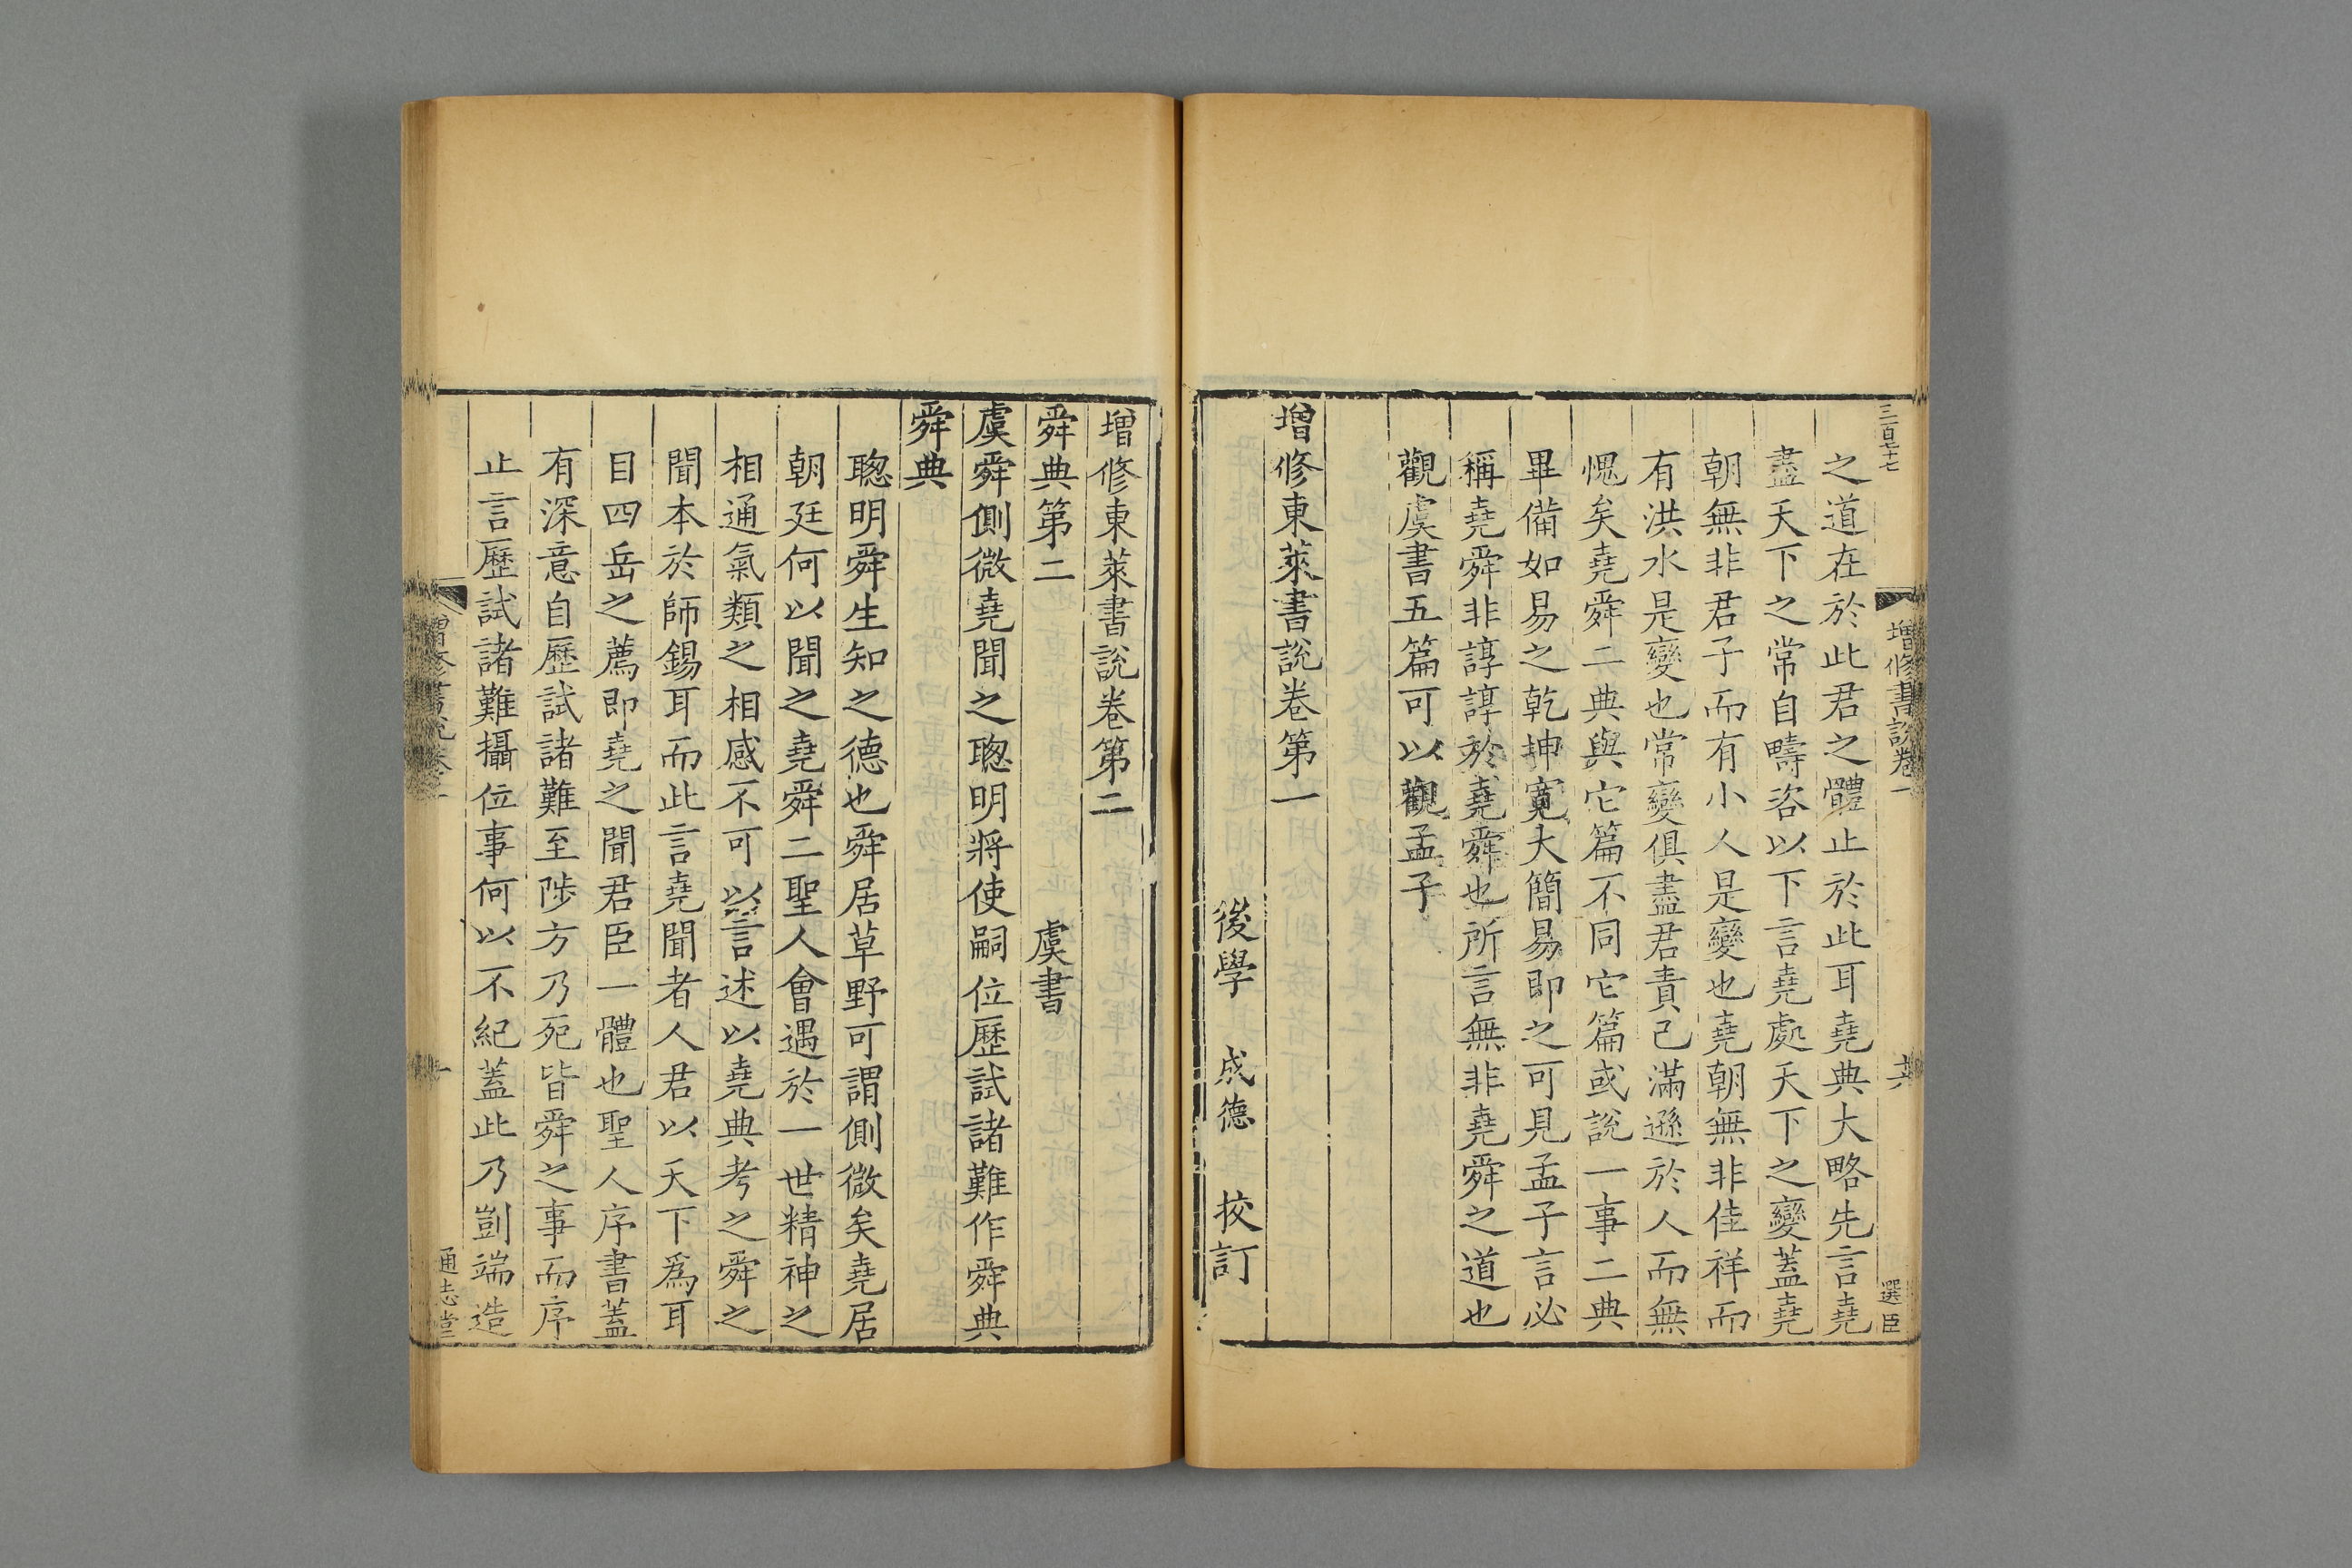 三百十七
增修書說卷一
十六
選臣
之道在於此君之體止於此耳堯典大略先言堯
盡天下之常自疇咨以下言堯處天下之變蓋堯
朝無非君子而有小人是變也堯朝無非佳祥而
有洪水是變也常變俱盡君責己滿遜於人而無
愧矣堯舜二典與它篇不同它篇或說一事二典
畢備如易之乾坤寬大簡易即之可見孟子言必
稱堯舜非諄諄於堯舜也所言無非堯舜之道也
觀虞書五篇可以觀孟子
增修東萊書說卷第一
後學 成德 校訂
增修東萊書說卷第二
舜典第二 虞書
虞舜側微堯聞之聰明將使嗣位歷試諸難作舜典
舜典
聰明舜生知之德也舜居草野可謂側微矣堯居
朝廷何以聞之堯舜二聖人會遇於一世精神之
相通氣類之相感不可以言述以堯典考之舜之
聞本於師錫耳而此言堯聞者人君以天下為耳
目四岳之薦即堯之聞君臣一體也聖人序書蓋
有深意自歷試諸難至陟方乃死皆舜之事而序
止言歷試諸難攝位事何以不紀蓋此乃剴端造
增修書說卷二
一
通志堂